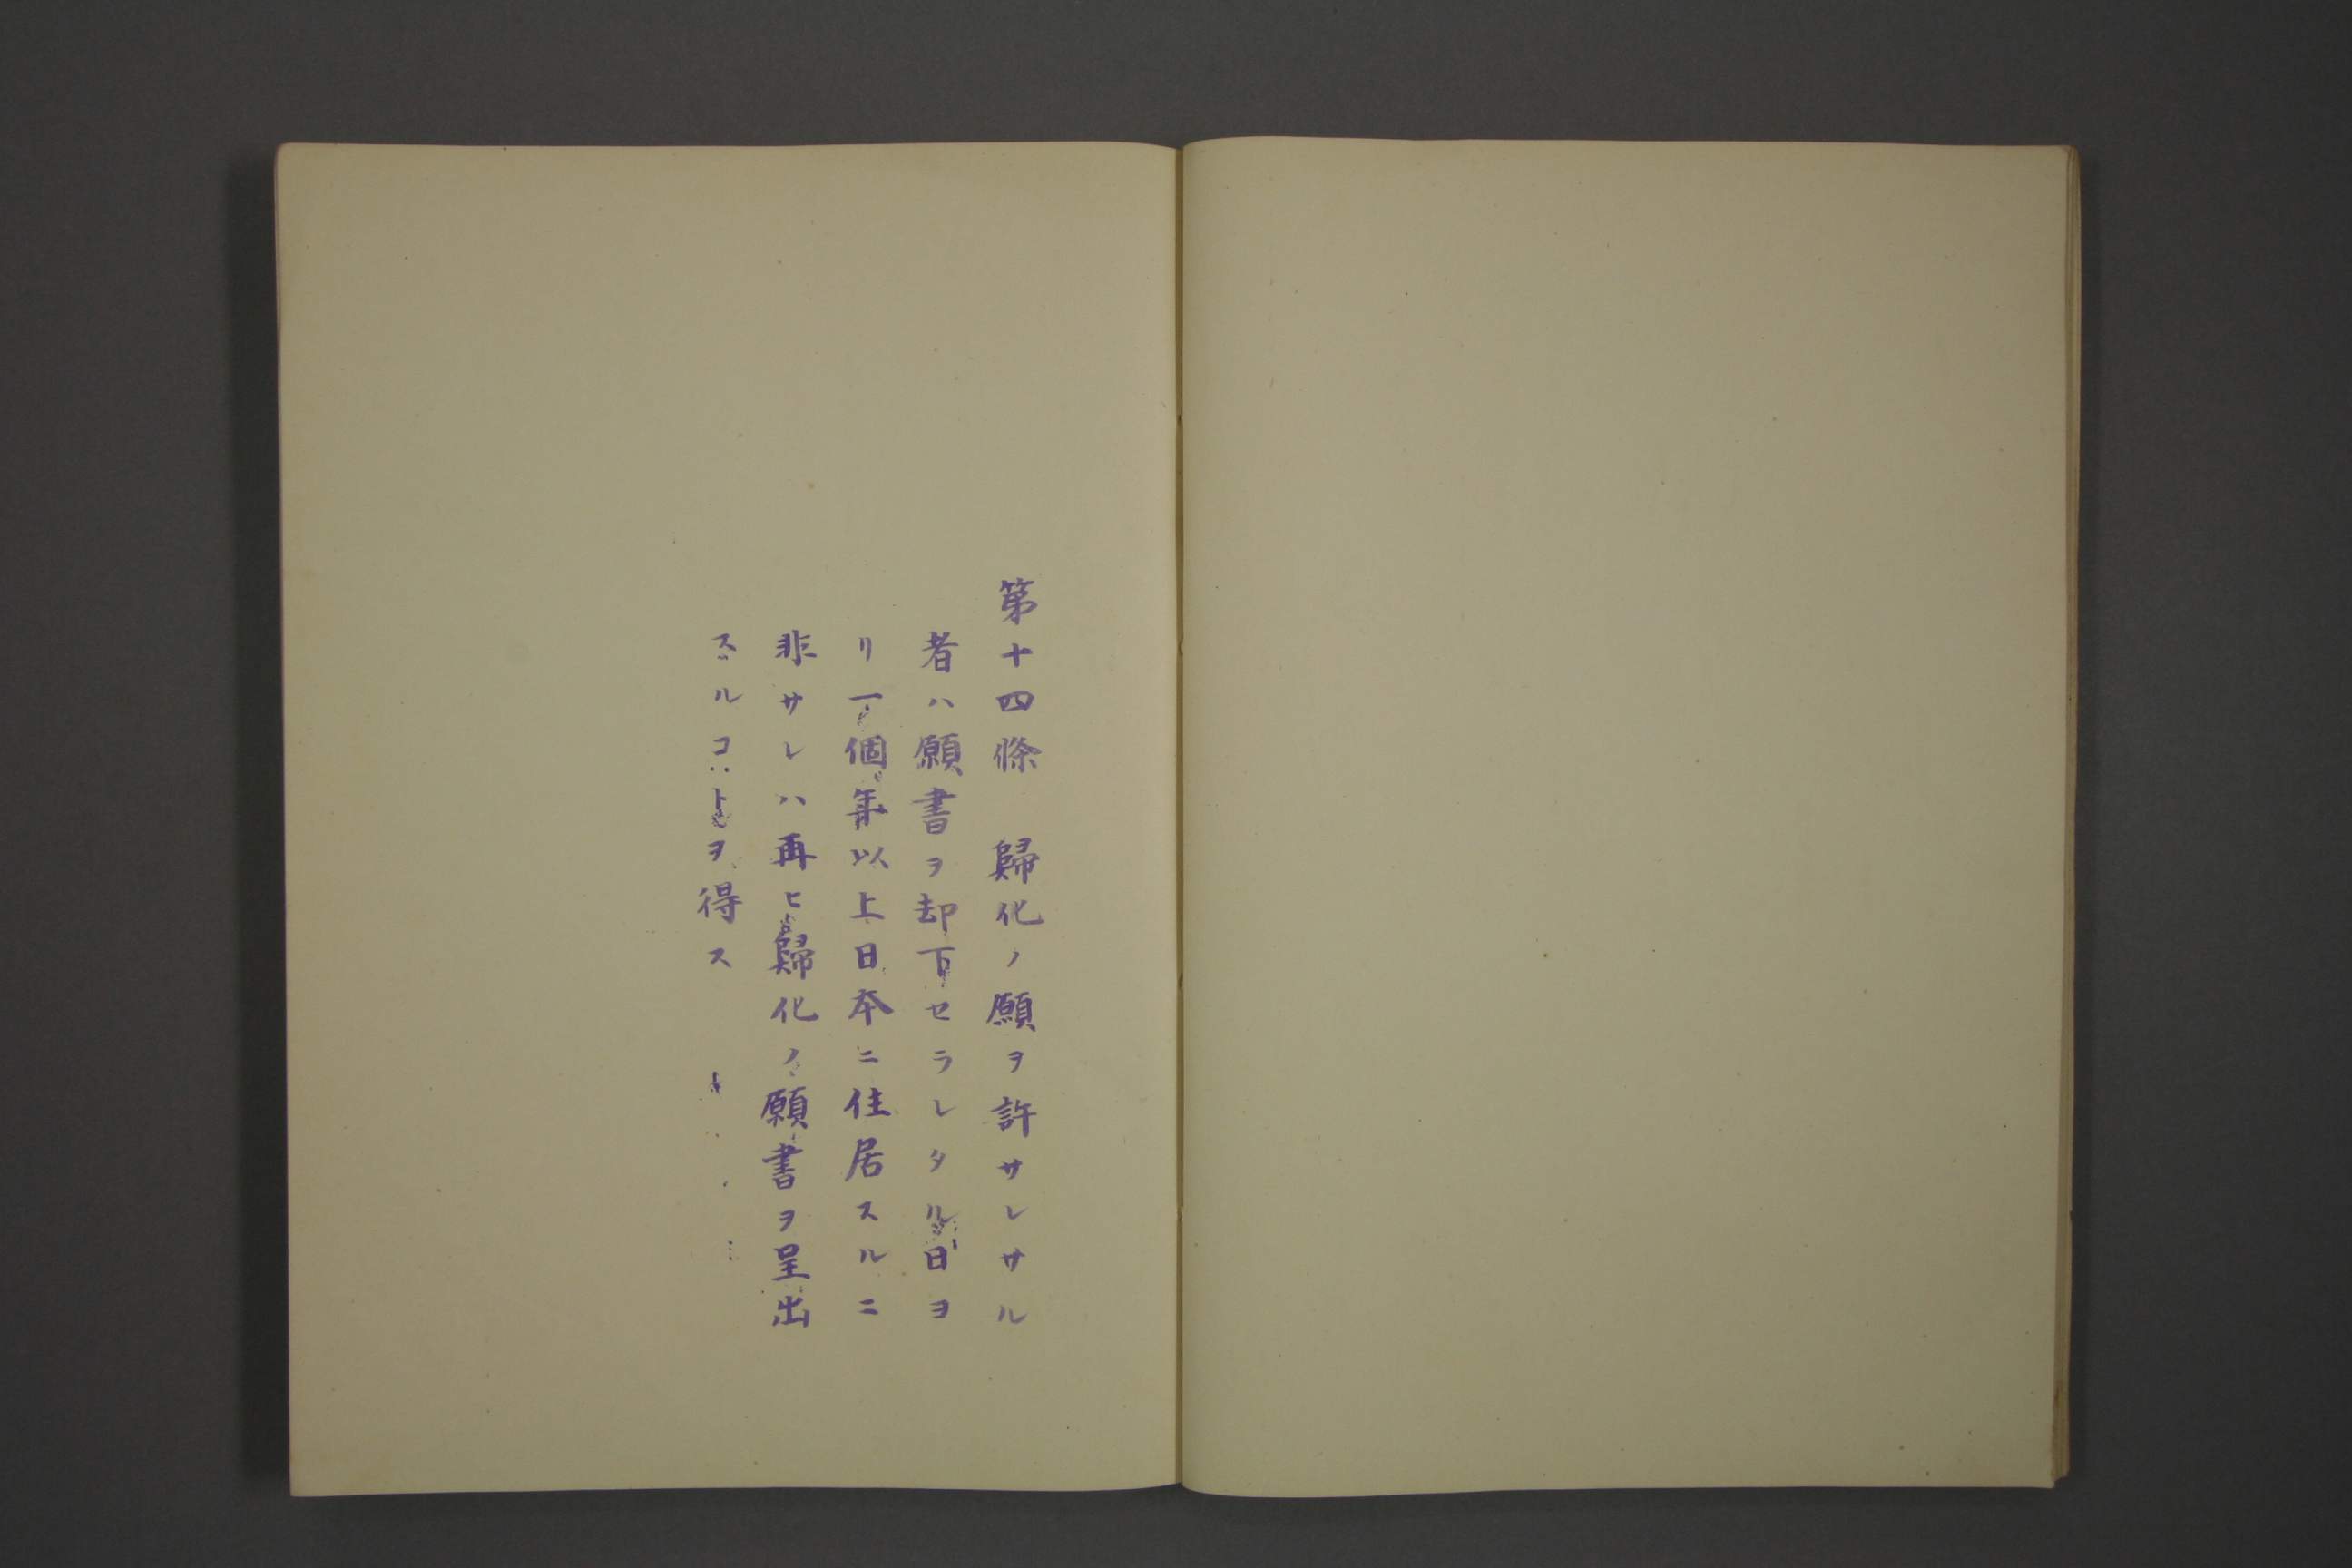 第十四條　歸化ノ願ヲ許サレサル
者ハ願書ヲ却下セラレタル日ヨ
リ一個年以上日本ニ住居スルニ
非サレハ再ヒ歸化ノ願書ヲ呈出
スルコトヲ得ス